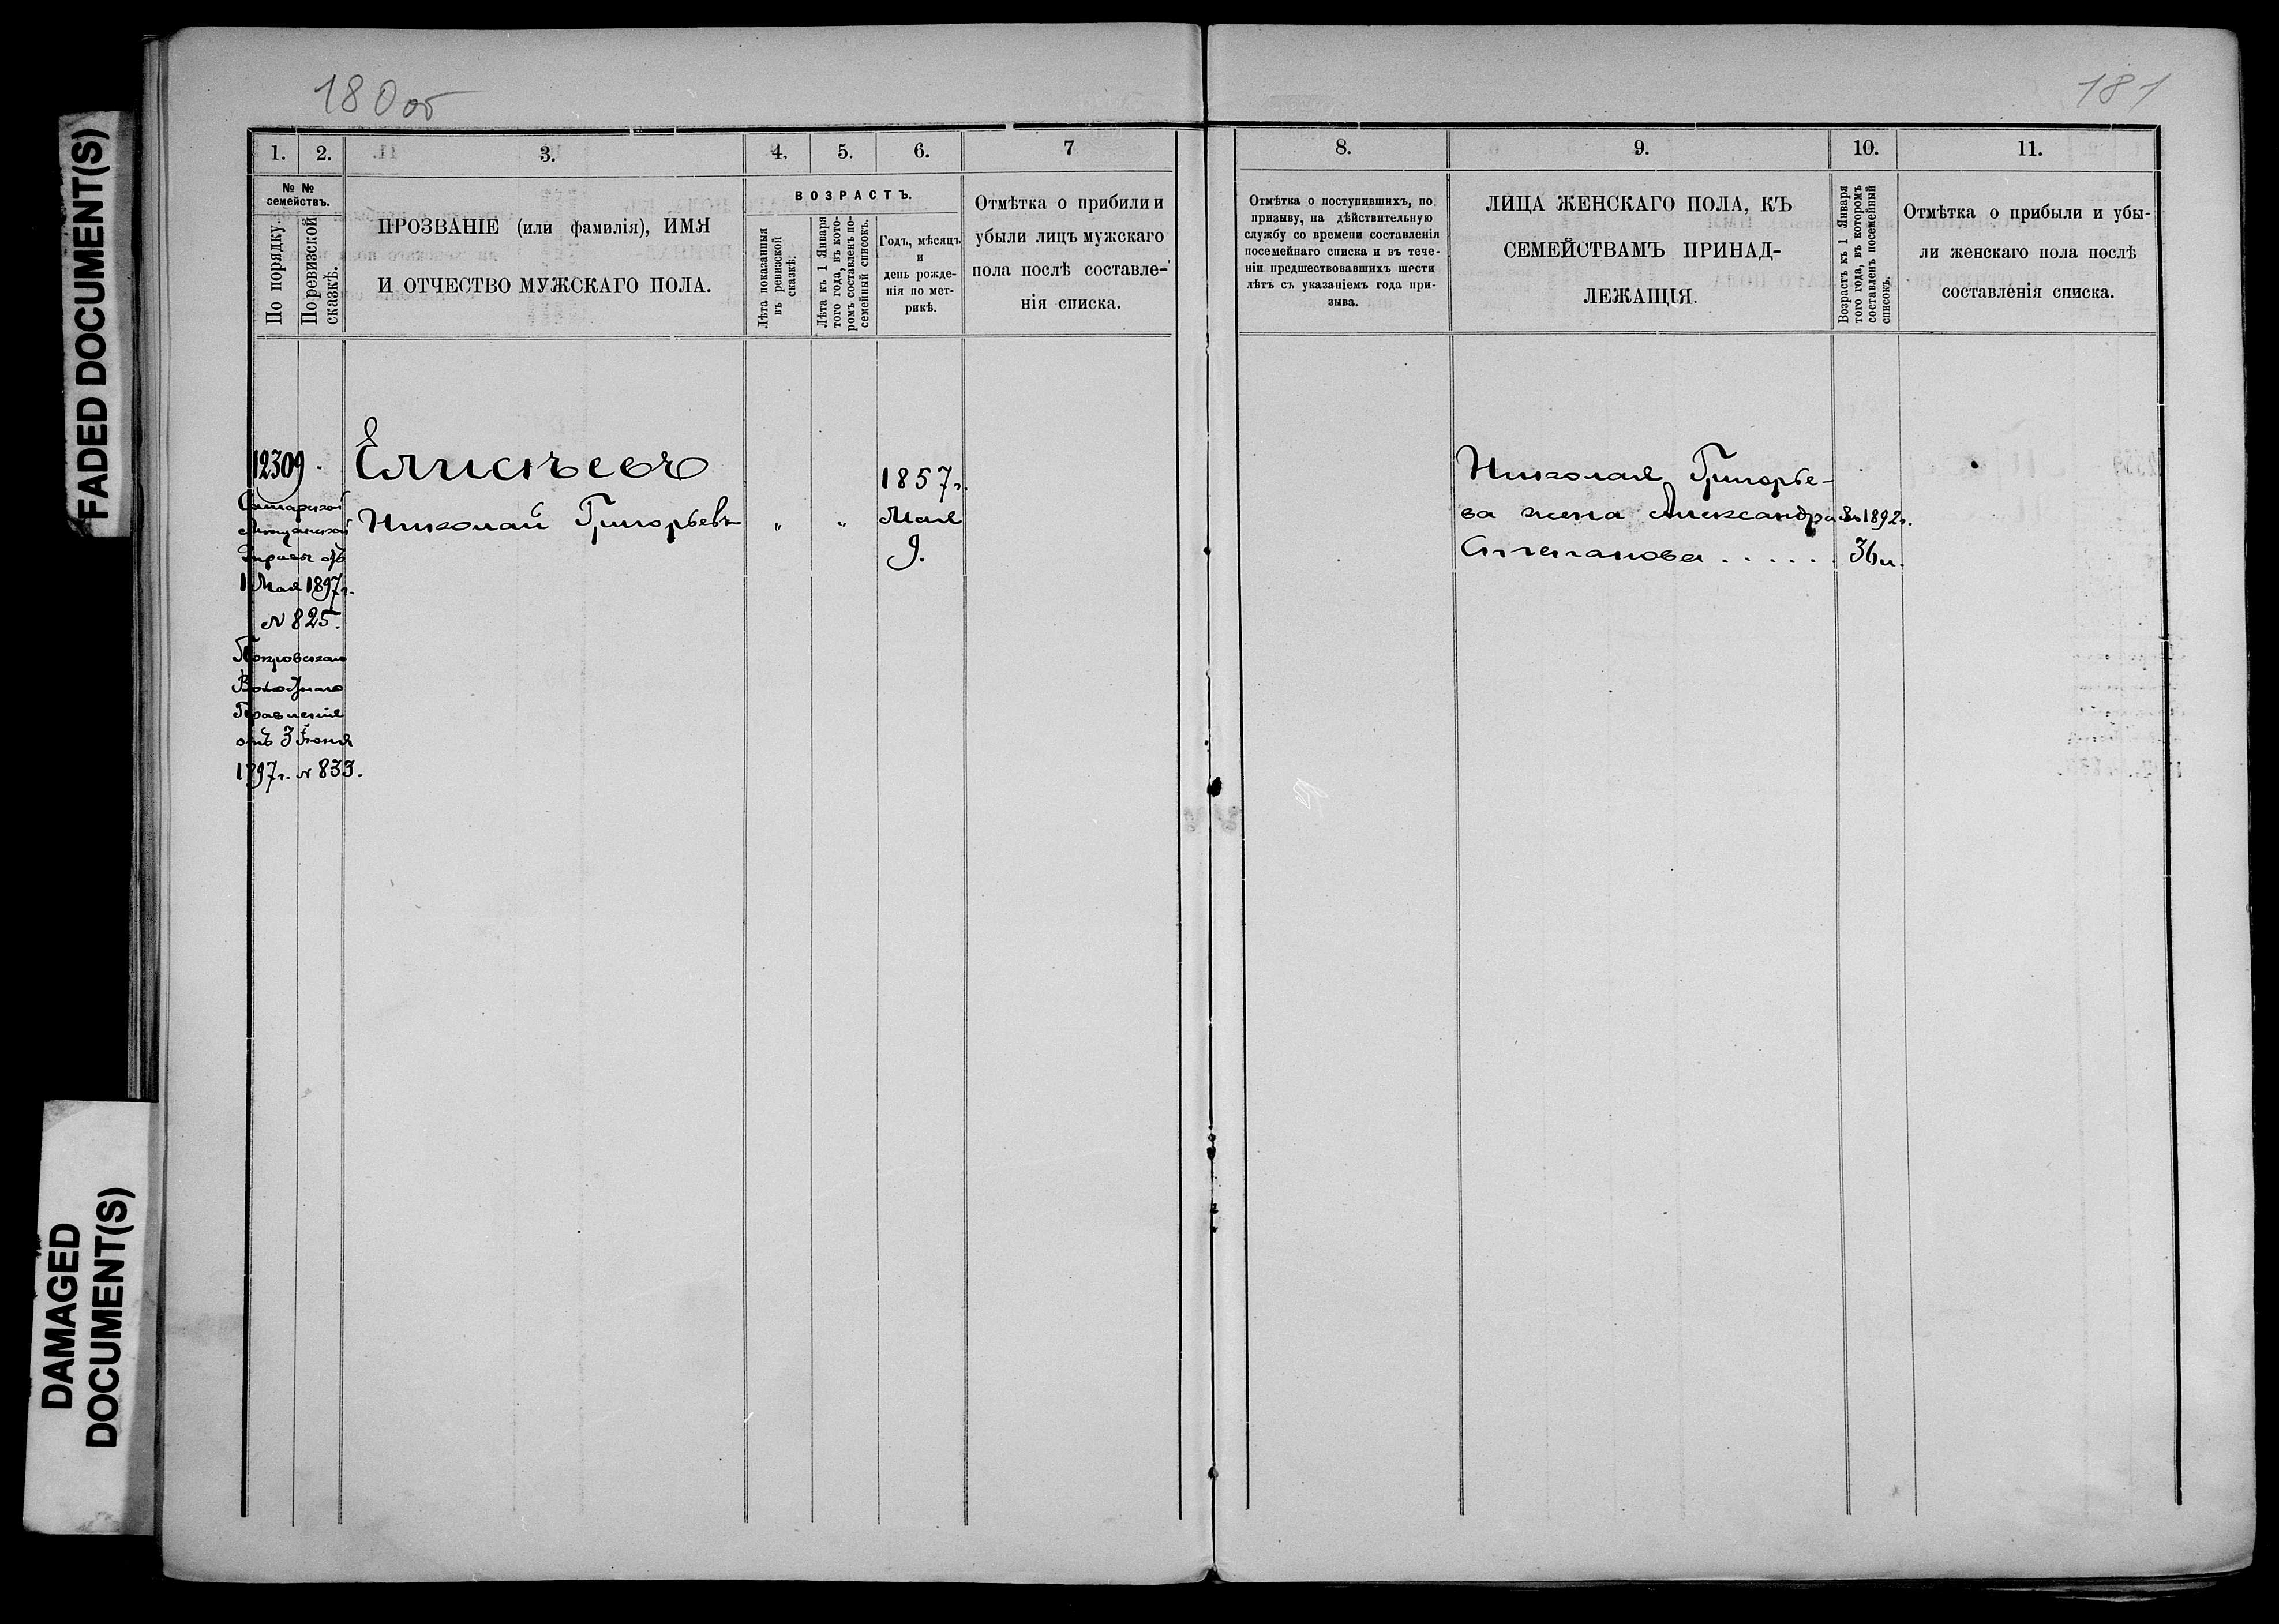 FADED DOCUMENT(S)
DAMAGED
DOCUMENT(S)
180 об
1.
2.
3.
4.
5.
6.
7
№ №
семействъ.
По порядку.
По ревизской
сказкѣ.
ПРОЗВАНІЕ (или фамилія), ИМЯ
И ОТЧЕСТВО МУЖСКАГО ПОЛА.
ВОЗРАСТЪ.
Лѣта показанныя
въ ревизской
сказкѣ.
Лѣта къ 1 Января
того года, въ кото-
ромъ составленъ по-
семейный списокъ.
Годъ, мѣсяцъ
и
день рожде-
нія по мет-
рикѣ.
Отмѣтка о прибыли и
убыли лицъ мужскаго
пола послѣ составле-
нія списка.
12309.
Самарской
Мѣщанской
Управы отъ
1 Мая 1897г.
№ 825.
Покровскаго
Волостнаго
Правленія
отъ 3 Іюня
1897г. № 833.
Елисѣевъ
Николай Григорьевъ
"
"
1857г.
Мая
9.
181
8.
9.
10.
11.
Отмѣтка о поступившихъ, по
призыву, на дѣйствительную
службу со времени составленія
посемейнаго списка и въ тече-
ніи предшествовавшихъ шести
лѣтъ съ указаніемъ года при-
зыва.
ЛИЦА ЖЕНСКАГО ПОЛА, КЪ
СЕМЕЙСТВАМЪ ПРИНАД-
ЛЕЖАЩІЯ.
Возрастъ къ 1 Января
того года, въ которомъ
составленъ посемейный
списокъ.
Отмѣтка о прибыли и убы-
ли женскаго пола послѣ
составленія списка.
Николая Григорье-
ва жена Александра
Степанова . . . . .
1892г.
36 л.